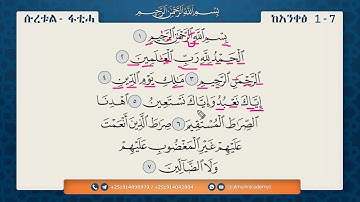 ሱረቱል - ፋቲሓ
بِسْمِ ٱللَّهِ ٱلرَّحْمَٰنِ ٱلرَّحِيمِ
ከአንቀፅ 1-7
بِسْمِ ٱللَّهِ ٱلرَّحْمَٰنِ ٱلرَّحِيمِ ١
ٱلْحَمْدُ لِلَّهِ رَبِّ ٱلْعَٰلَمِينَ ٢
ٱلرَّحْمَٰنِ ٱلرَّحِيمِ ٣ مَٰلِكِ يَوْمِ ٱلدِّينِ ٤
إِيَّاكَ نَعْبُدُ وَإِيَّاكَ نَسْتَعِينُ ٥ ٱهْدِنَا
ٱلصِّرَٰطَ ٱلْمُسْتَقِيمَ ٦ صِرَٰطَ ٱلَّذِينَ أَنْعَمْتَ
عَلَيْهِمْ غَيْرِ ٱلْمَغْضُوبِ عَلَيْهِمْ
وَلَا ٱلضَّآلِّينَ ٧